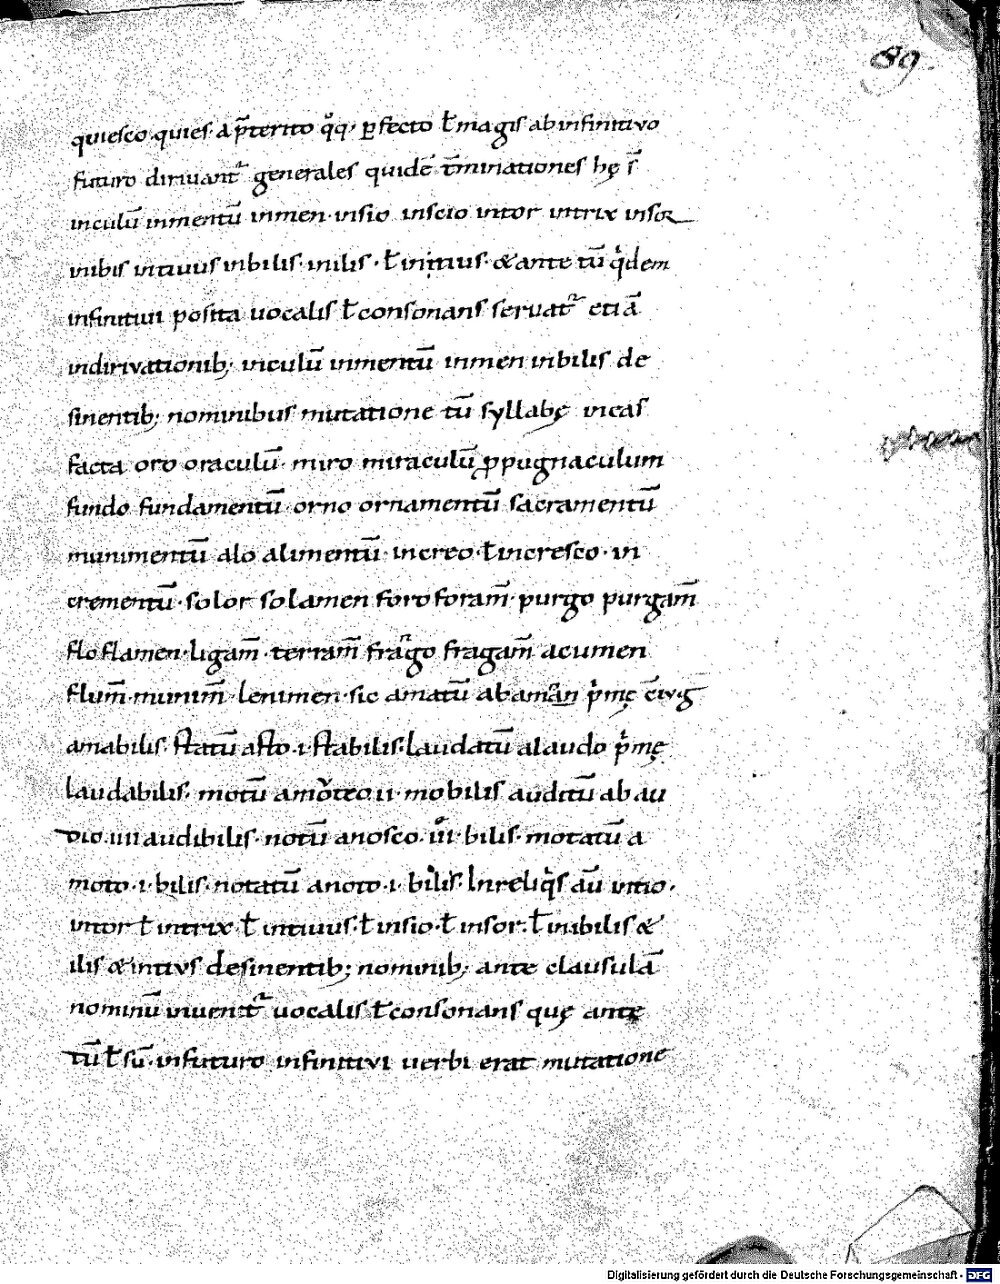 89.
quiesco quies. a p̄terito qͦq. ꝑfecto ł magis ab infinitivo
futuro dirivant᷑ generales quidē t̄minationes hę s̄
inculū inmentū inmen. insio inscio intor intrix insor
inibis intiuus inbilis. inilis. ł intius. & ante tū qͥdem
infinitiui posita uocalis ł consonans servat᷑ etiā
indirivationib; inculū inmentū inmen inbilis de
sinentib; nominibus mutatione tū syllabę incas
facta oro oraculū. miro miraculū ꝓpugnaculum
fundo fundamentū. orno ornamentū sacramentū
munimentū alo alimentū. increo. ł incresco. in
crementū. solor solamen foro foram̄. purgo purgam̄
flo flamen. ligam̄. terram̄ frāgo fragam̄ acumen
flum̄. munim̄. lenimen. sic amatū ab aman pͥmę c̄iuḡ
amabilis. statū a sto. i. stabilis. laudatū a laudo pͥmę
laudabilis. motū a moͣteo ii. mobilis auditū ab au
dio. iiii audibilis. notū a nosco. iii. bilis. motatū a
moto. i. bilis. notatū a noto. i. bilis. In reliqͥs aū intio.
intor ł intrix. ł intiuus. ł insio. ł insor. ł inibilis &
ilis & intivs desinentib; nominib; ante clausulā
nominū inuenit᷑ uocalis ł consonans quę ante
tū ł sū. in futuro infinitivi uerbi erat mutatione
Digitalisierung gefördert durch die Deutsche Forschungsgemeinschaft - DFG